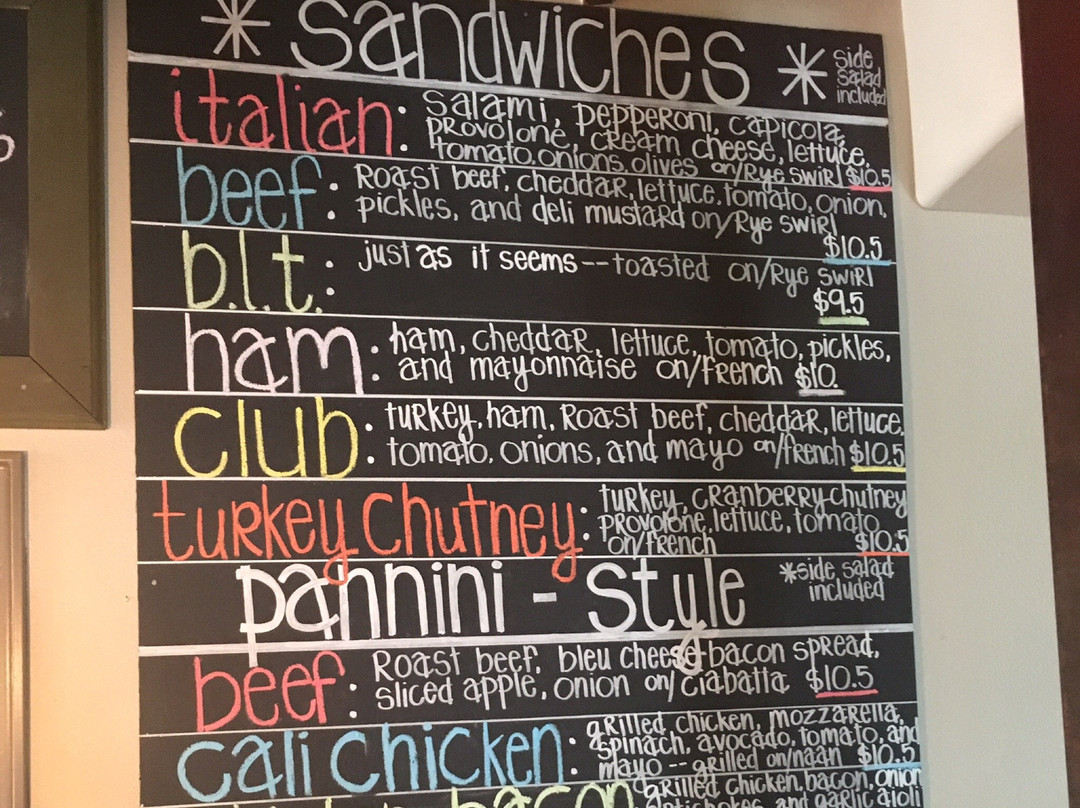 * sandwiches *
side
salad
included
italian: salami, pepperoni, capicola,
provolone, cream cheese, lettuce,
tomato, onions, olives on/Rye swirl $10.5
beef: Roast beef, cheddar, lettuce, tomato, onion,
pickles, and deli mustard on/Rye swirl
$10.5
b.l.t.: just as it seems--toasted on/Rye swirl
$9.5
ham: ham, cheddar, lettuce, tomato, pickles,
and mayonnaise on/french $10.
club: turkey, ham, Roast beef, cheddar, lettuce,
tomato, onions, and mayo on/french $10.5
turkey chutney: turkey, cranberry-chutney
provolone, lettuce, tomato
on/french $10.5
pannini - style
*side salad
included
beef: Roast beef, bleu cheese-bacon spread,
sliced apple, onion on/ciabatta $10.5
cali chicken: grilled chicken, mozzarella,
spinach, avocado, tomato, and
mayo -- grilled on/naan $10.5
bacon grilled chicken, bacon, onion
and garlic aioli